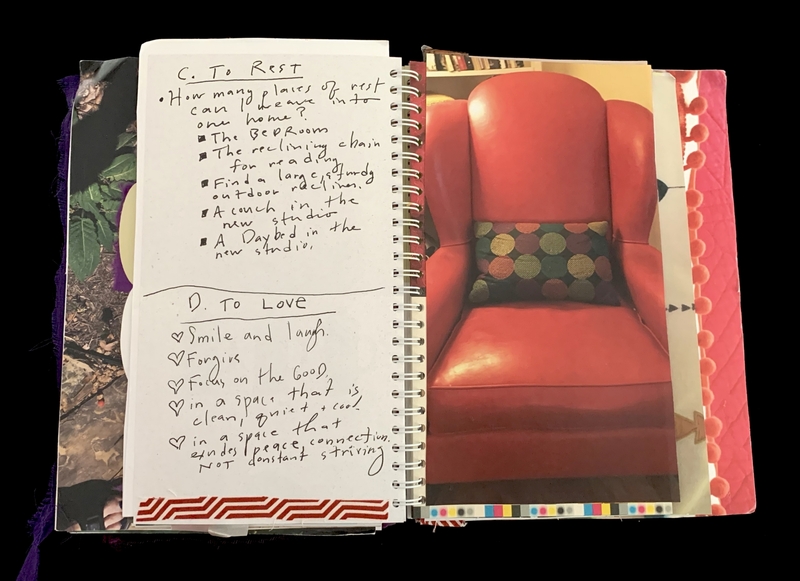 C. To Rest
• How many places of rest
can I weave into
one home?
■ The BedRoom
■ The reclining chair
for reading
■ Find a large, sturdy
outdoor recliner.
■ A couch in the
new studio
■ A Daybed in the
new studio.
D. To Love
♡ Smile and laugh.
♡ Forgive
♡ Focus on the GOOD.
♡ in a space that is
clean, quiet + cool.
♡ in a space that
exudes peace, connection,
NOT constant striving